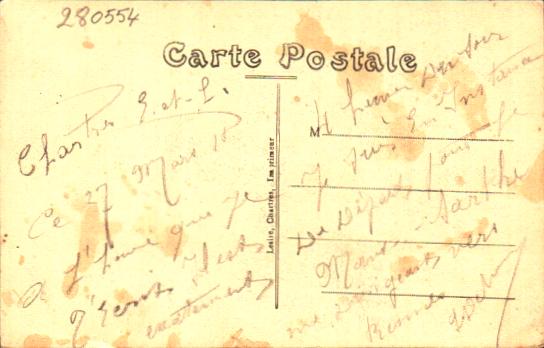 280554
Carte Postale
Chartres E.-et-L.
Ce 27 Mars 18
à l'heure que je
t'écris Il est
exactement
Leslie, Chartres, Imprimeur
M
4 heures Du soir
Je suis En Instance
De Départ pour Le
Mans - Sarthe
me Dirigeant vers
Rennes